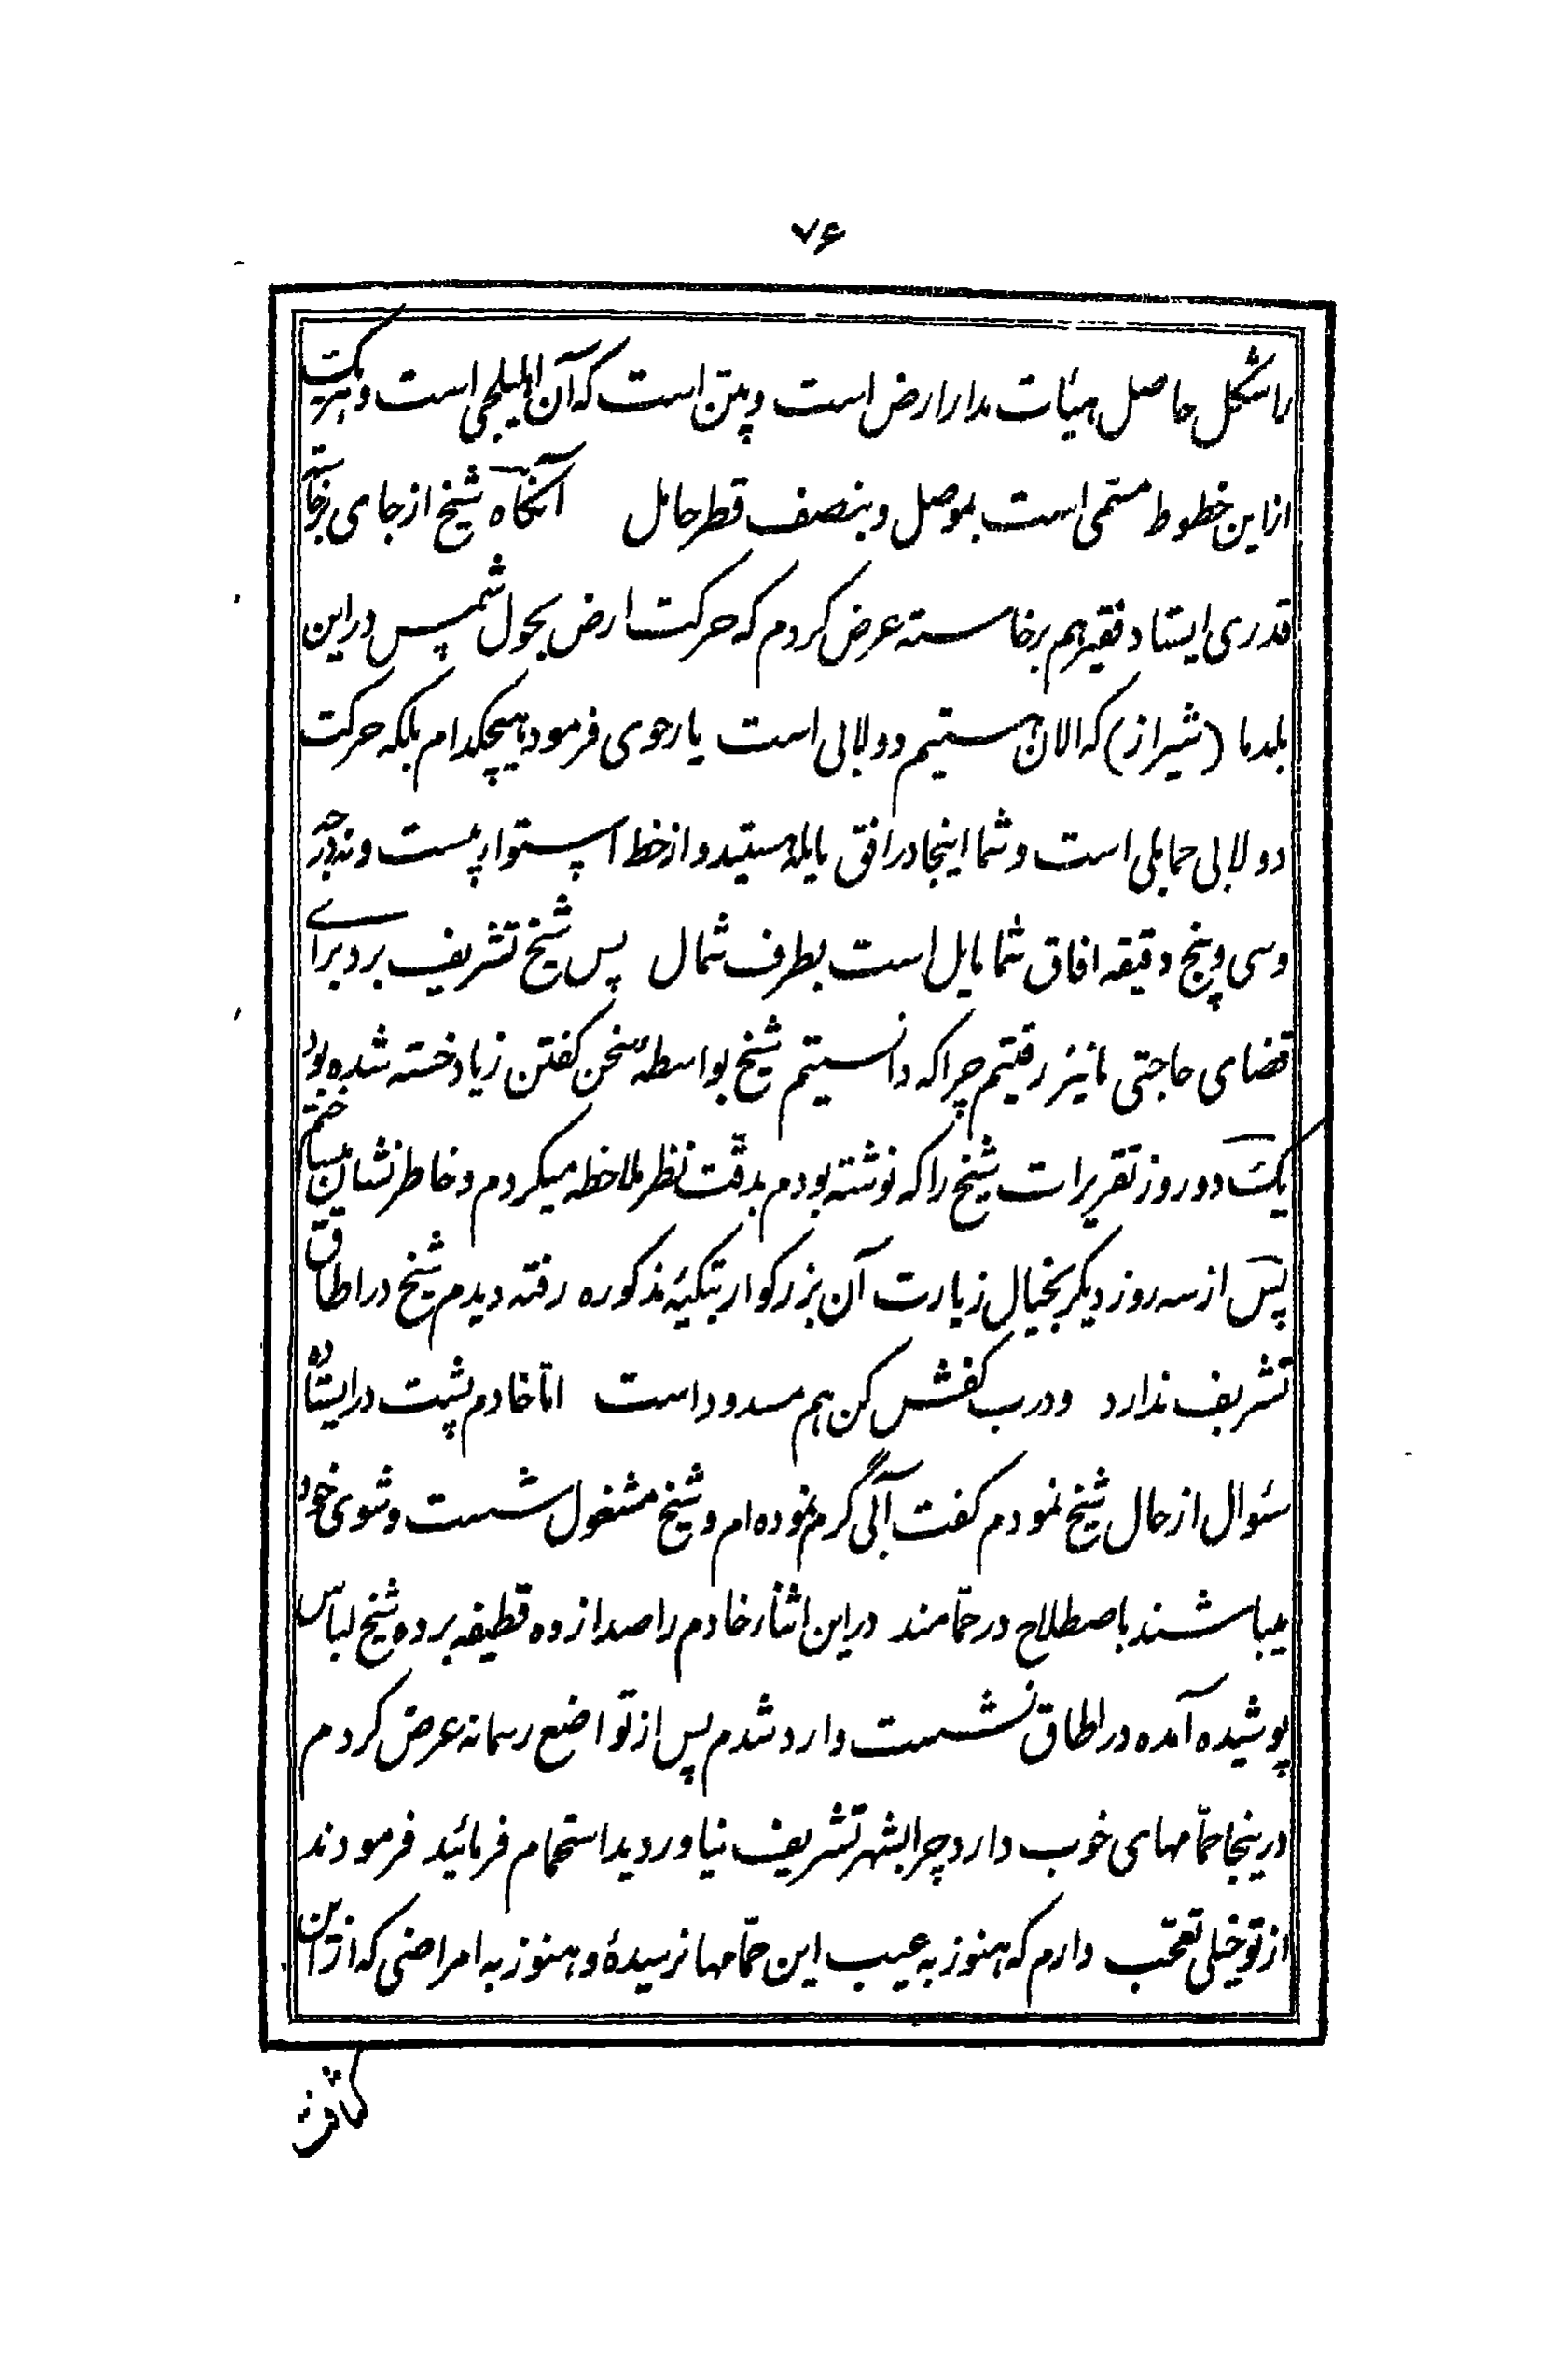 ۷۶
را شکل حاصل هیئات مدار ارض است و بین است که آن اهلیلجی است و هریک
از این خطوط مسمّی است بموصل و بنصف قطر حامل آنگاه شیخ از جای برخاسته
قدری ایستاد فقیر هم برخاسته عرض کردم که حرکت ارض بحول شمس در این
بلد ما (شیراز) که الان هستیم دولابی است یا رحوی فرمود هیچکدام بلکه حرکت
دولابی حمایلی است و شما اینجا در افق مایله هستید و از خط استوا بیست و نه درجه
و سی و پنج دقیقه افاق شما مایل است بطرف شمال پس شیخ تشریف برد برای
قضای حاجتی ما نیز رفتیم چرا که دانستیم شیخ بواسطهٔ سخن کفتن زیاد خسته شده بود
یک دو روز تقریرات شیخ را که نوشته بودم بدقّت نظر ملاحظه میکردم و خاطر نشان میساختم
پس از سه روز دیکر بخیال زیارت آن بزرکوار بتکیهٔ مذکوره رفته دیدم شیخ در اطاق
تشریف ندارد و درب کفش کن هم مسدود است امّا خادم پشت در ایستاده
سئوال از حال شیخ نمودم کفت آبی گرم نموده ام و شیخ مشغول شست و شوی خود
میباشند باصطلاح در حمّامند در این اثنا خادم را صدا زده قطیفه برده شیخ لباس
پوشیده آمده در اطاق نشست وارد شدم پس از تواضع رسمانه عرض کردم
درینجا حمّامهای خوب دارد چرا بشهر تشریف نیاوردید استحمام فرمائید فرمودند
از تو خیلی تعجّب دارم که هنوز به عیب این حمّامها نرسیدهٔ و هنوز به امراضی که از این